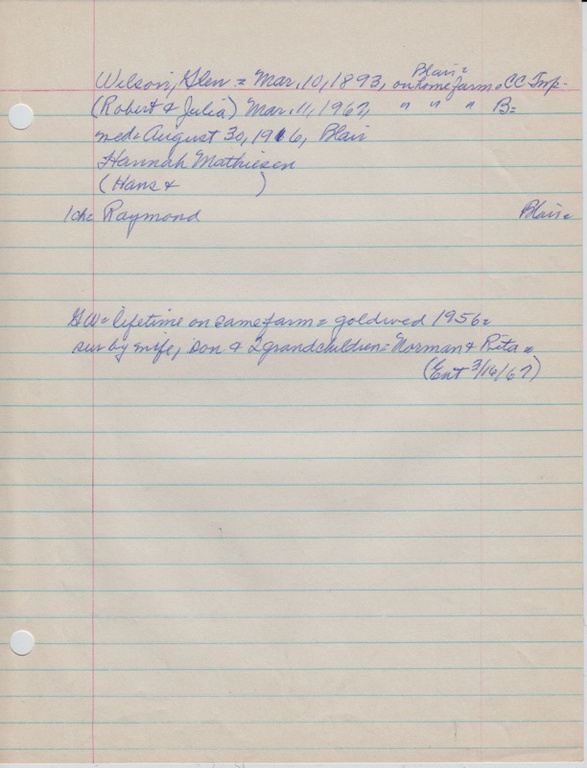 Blair =
Wilson, Glen = Mar. 10, 1893, on home farm = CC Twp -
(Robert & Julia) Mar. 11, 1967, " " " B =
med = August 30, 1916, Blair
Hannah Mathiesen
(Hans & )
1 ch = Raymond Blair =
GW = lifetime on same farm = goldwed 1956 =
sur by wife, son & 2 grandchildren = Norman & Rita =
(Ent 3/16/67)